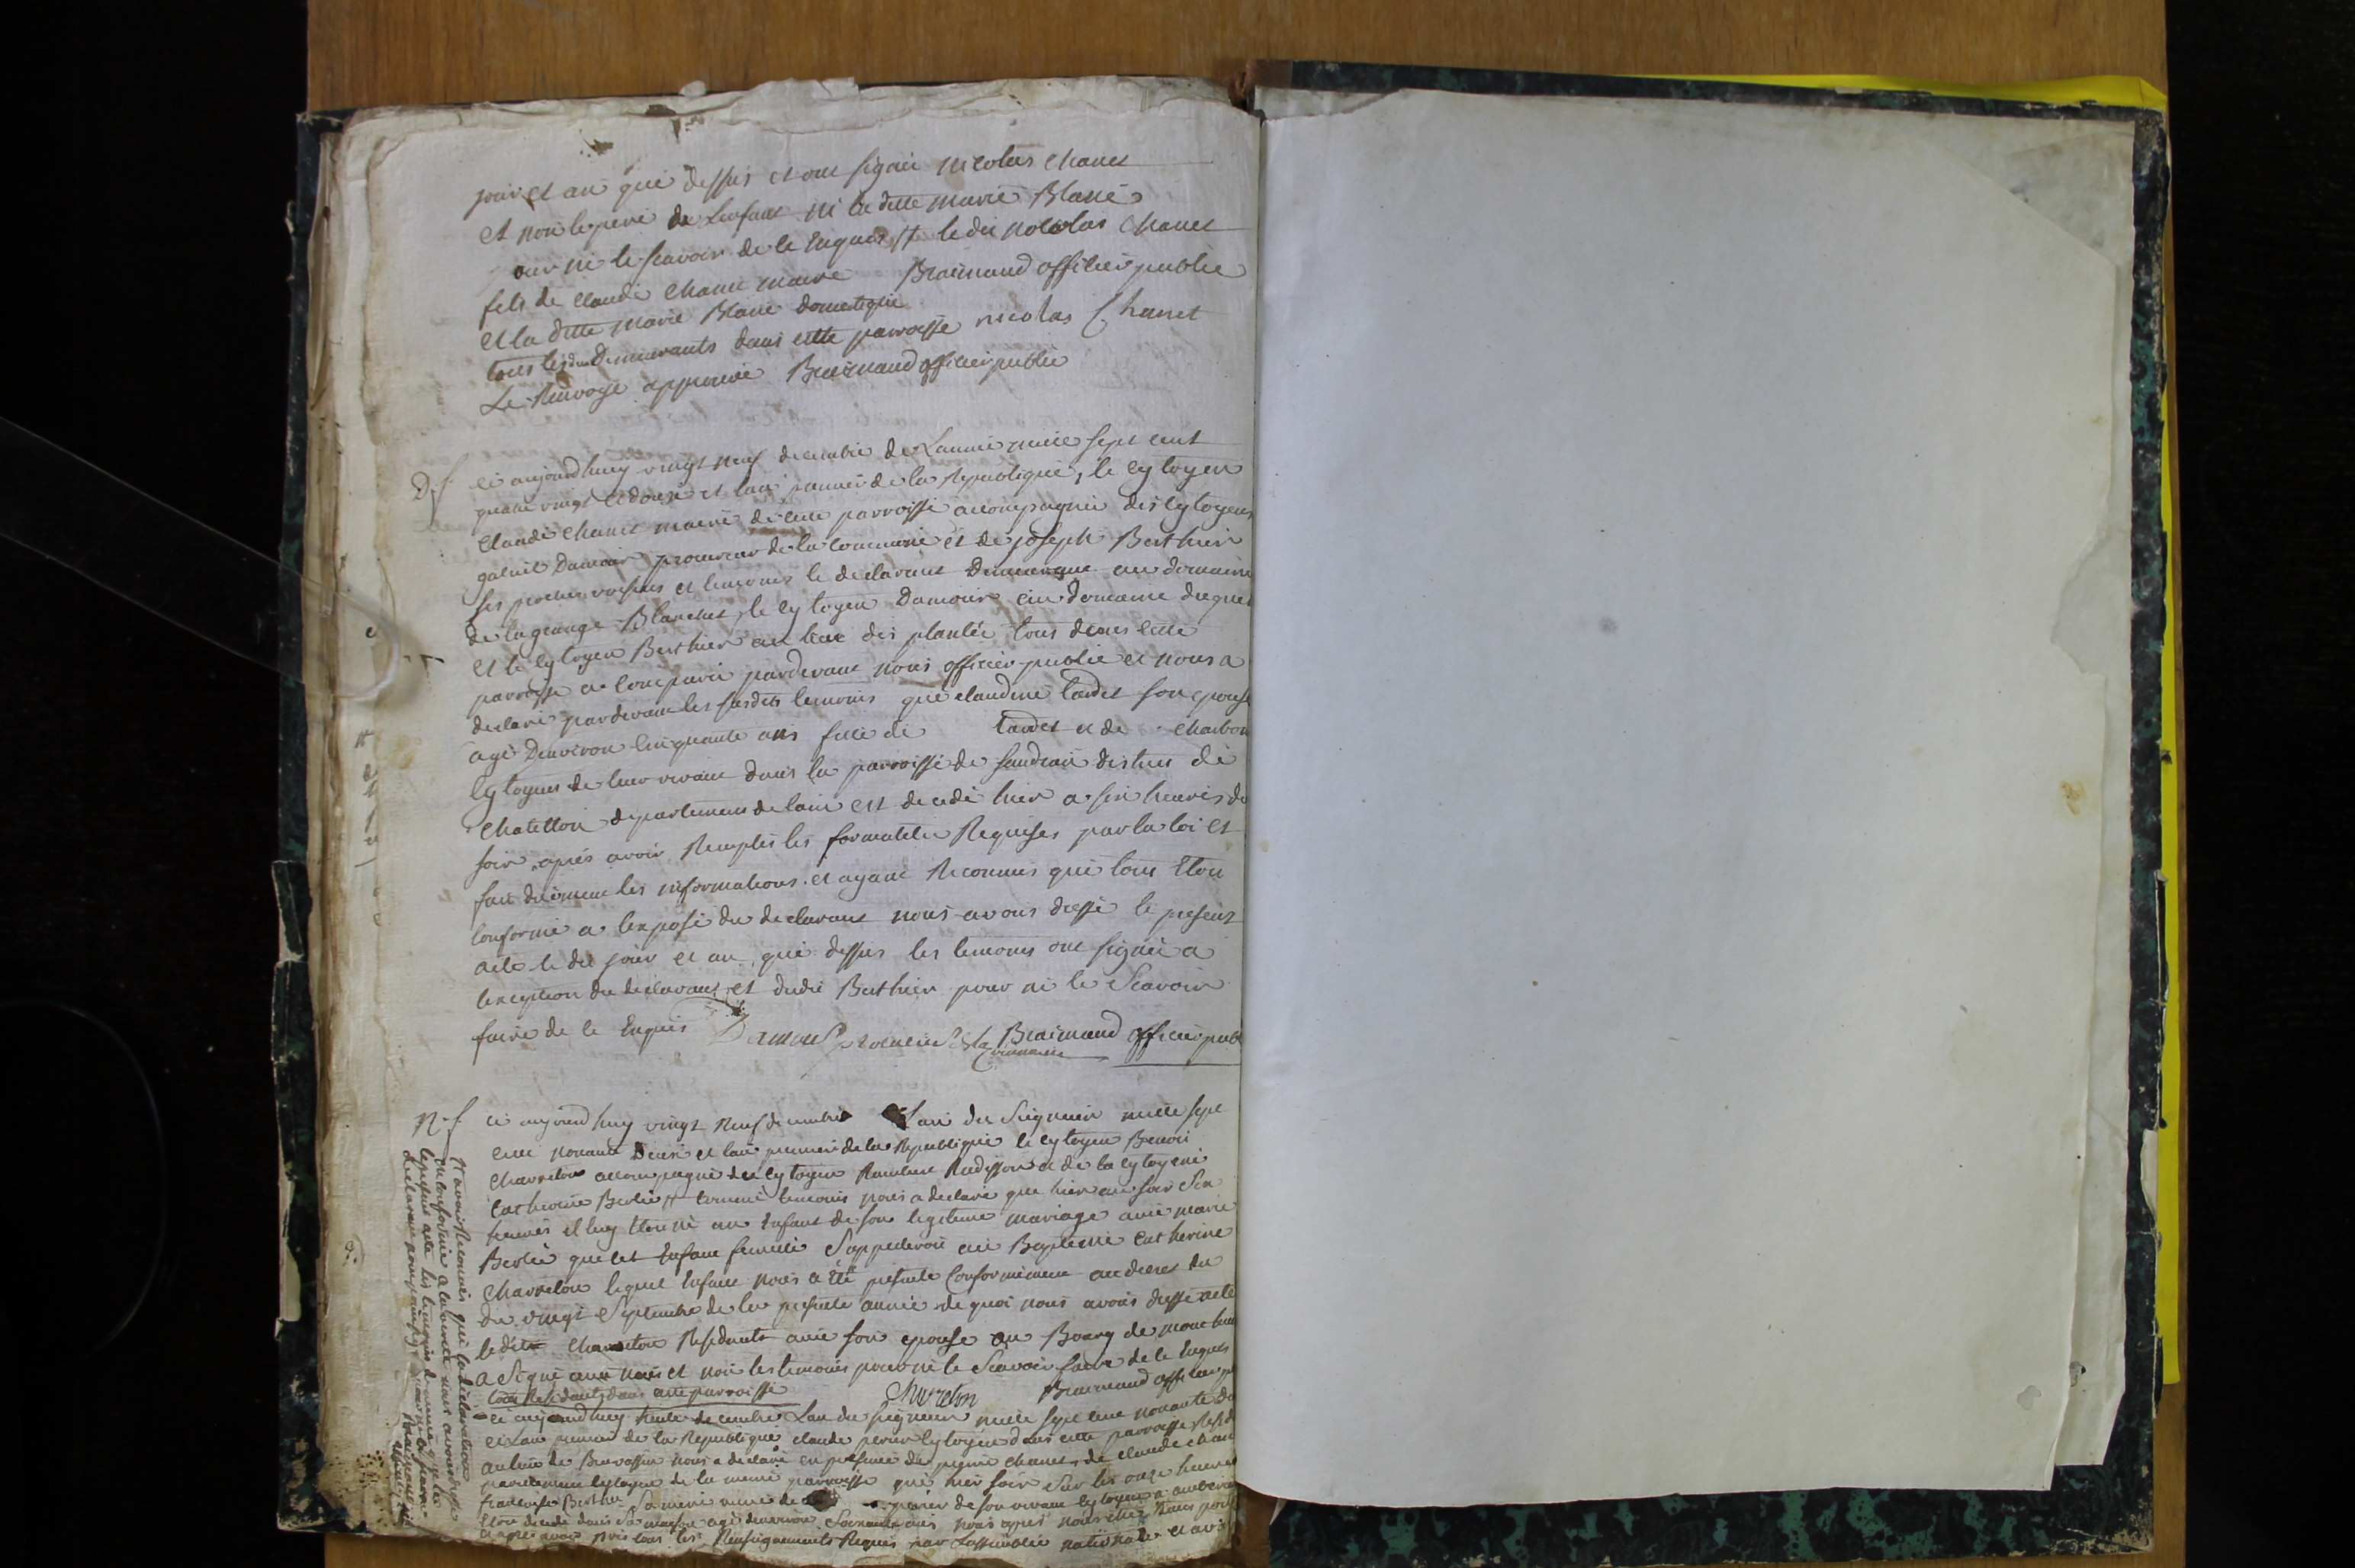 jour et an que dessus et ont signé nicolas chanet
et non le pere de Lenfant ni la ditte marie Blanc
pour ni le scavoir de le Enquis # le dit nicolas chanet
fils de claude chanet maire Braimaud officier public
et la ditte marie Blanc domestique
tous les deux Demeurants dans cette parroisse nicolas Chanet
Le Renvoye approuvé Braimaud officier public
D.f ce aujourdhuy vingt neuf decembre de Lannée mille sept cent
quatre vingt et douze et lan premier de la Republique, le cytoyen
claude chanet maire de cette parroisse accompagnie des cytoyens
Damour procureur de la commune et de joseph Berthier
ses proches voisins et temoins le declarant Demeurant au domaine
de la grange Blanchet, le cytoyen Damour au domaine
et le cytoyen Berthier au lieu des plantée tous dans cette
parroisse a comparu pardevant nous officier public et nous a
declaré pardevant les susdits temoins que claudine tardet son epouse
agé Denviron cinquante ans fille de tardet et de charbon
cytoyens de leur vivant dans la parroisse de sandran district de
chatillon departement de lain est decedé hier a six heures du
soir, après avoir Remplis les formalitée Requises par la loi et
fait duement les informations et ayant Reconnus que tout Etoit
conforme a lexposé du declarant nous avons dressé le present
acte le dit jour et an que dessus les temoins ont signée a
lexception du declarant et dudit Berthier pour ni le Scavoir
faire de le Enquis Damour procureur de la commune Braimaud officier publ
N.f ce aujourdhuy vingt neuf decembre Lan du Seigneur mille sept
cent nonante Deux et lan premier de la Republique le cytoyen Benoit
charreton accompagné du cytoyen Rambert Radisson et de la cytoyene
catherine Berlié # comme temoins nous a declaré que hier au soir Six
heures il luy Etoit né un Enfant de son legitime mariage avec marie
Berlié que cet Enfant femelle Sappelleroit au Baptême Catherine
charreton lequel Enfant nous a Eté presenté conformement au decret du
du vingt Septembre de la presente année de quoi nous avons dressé acte
ledit charreton Residents avec son epouse au Bourg de
a Signé avec nous et non les temoins pour ne le Scavoir faire de le Enquis
tous Residants dans cette parroisse Charreton Braimaud officier pu
# avoir Reconnus que la declaration
en conformité a la verité nous avons dressé
le present acte les temoins
declarant
ce aujourdhuy trente decembre Lan du seigneur mille sept cent nonante de
et Lan premier de la Republique claude perier cytoyen dans cette parroisse Resid
au lieu de nous a declaré en presence de pierre chanet, de claude chan
pareillement cytoyen de la meme parroisse que hier soir Sur les onze heures
francoise Berthier Sa mere veuve de perier de son vivant cytoyen a amberieu
Etoit decedé dans Sa maison agé denviron Soixante ans nous après nous etre
et après avoir pris tous les Renseignements Requis par Lassemblée nationale et avoir